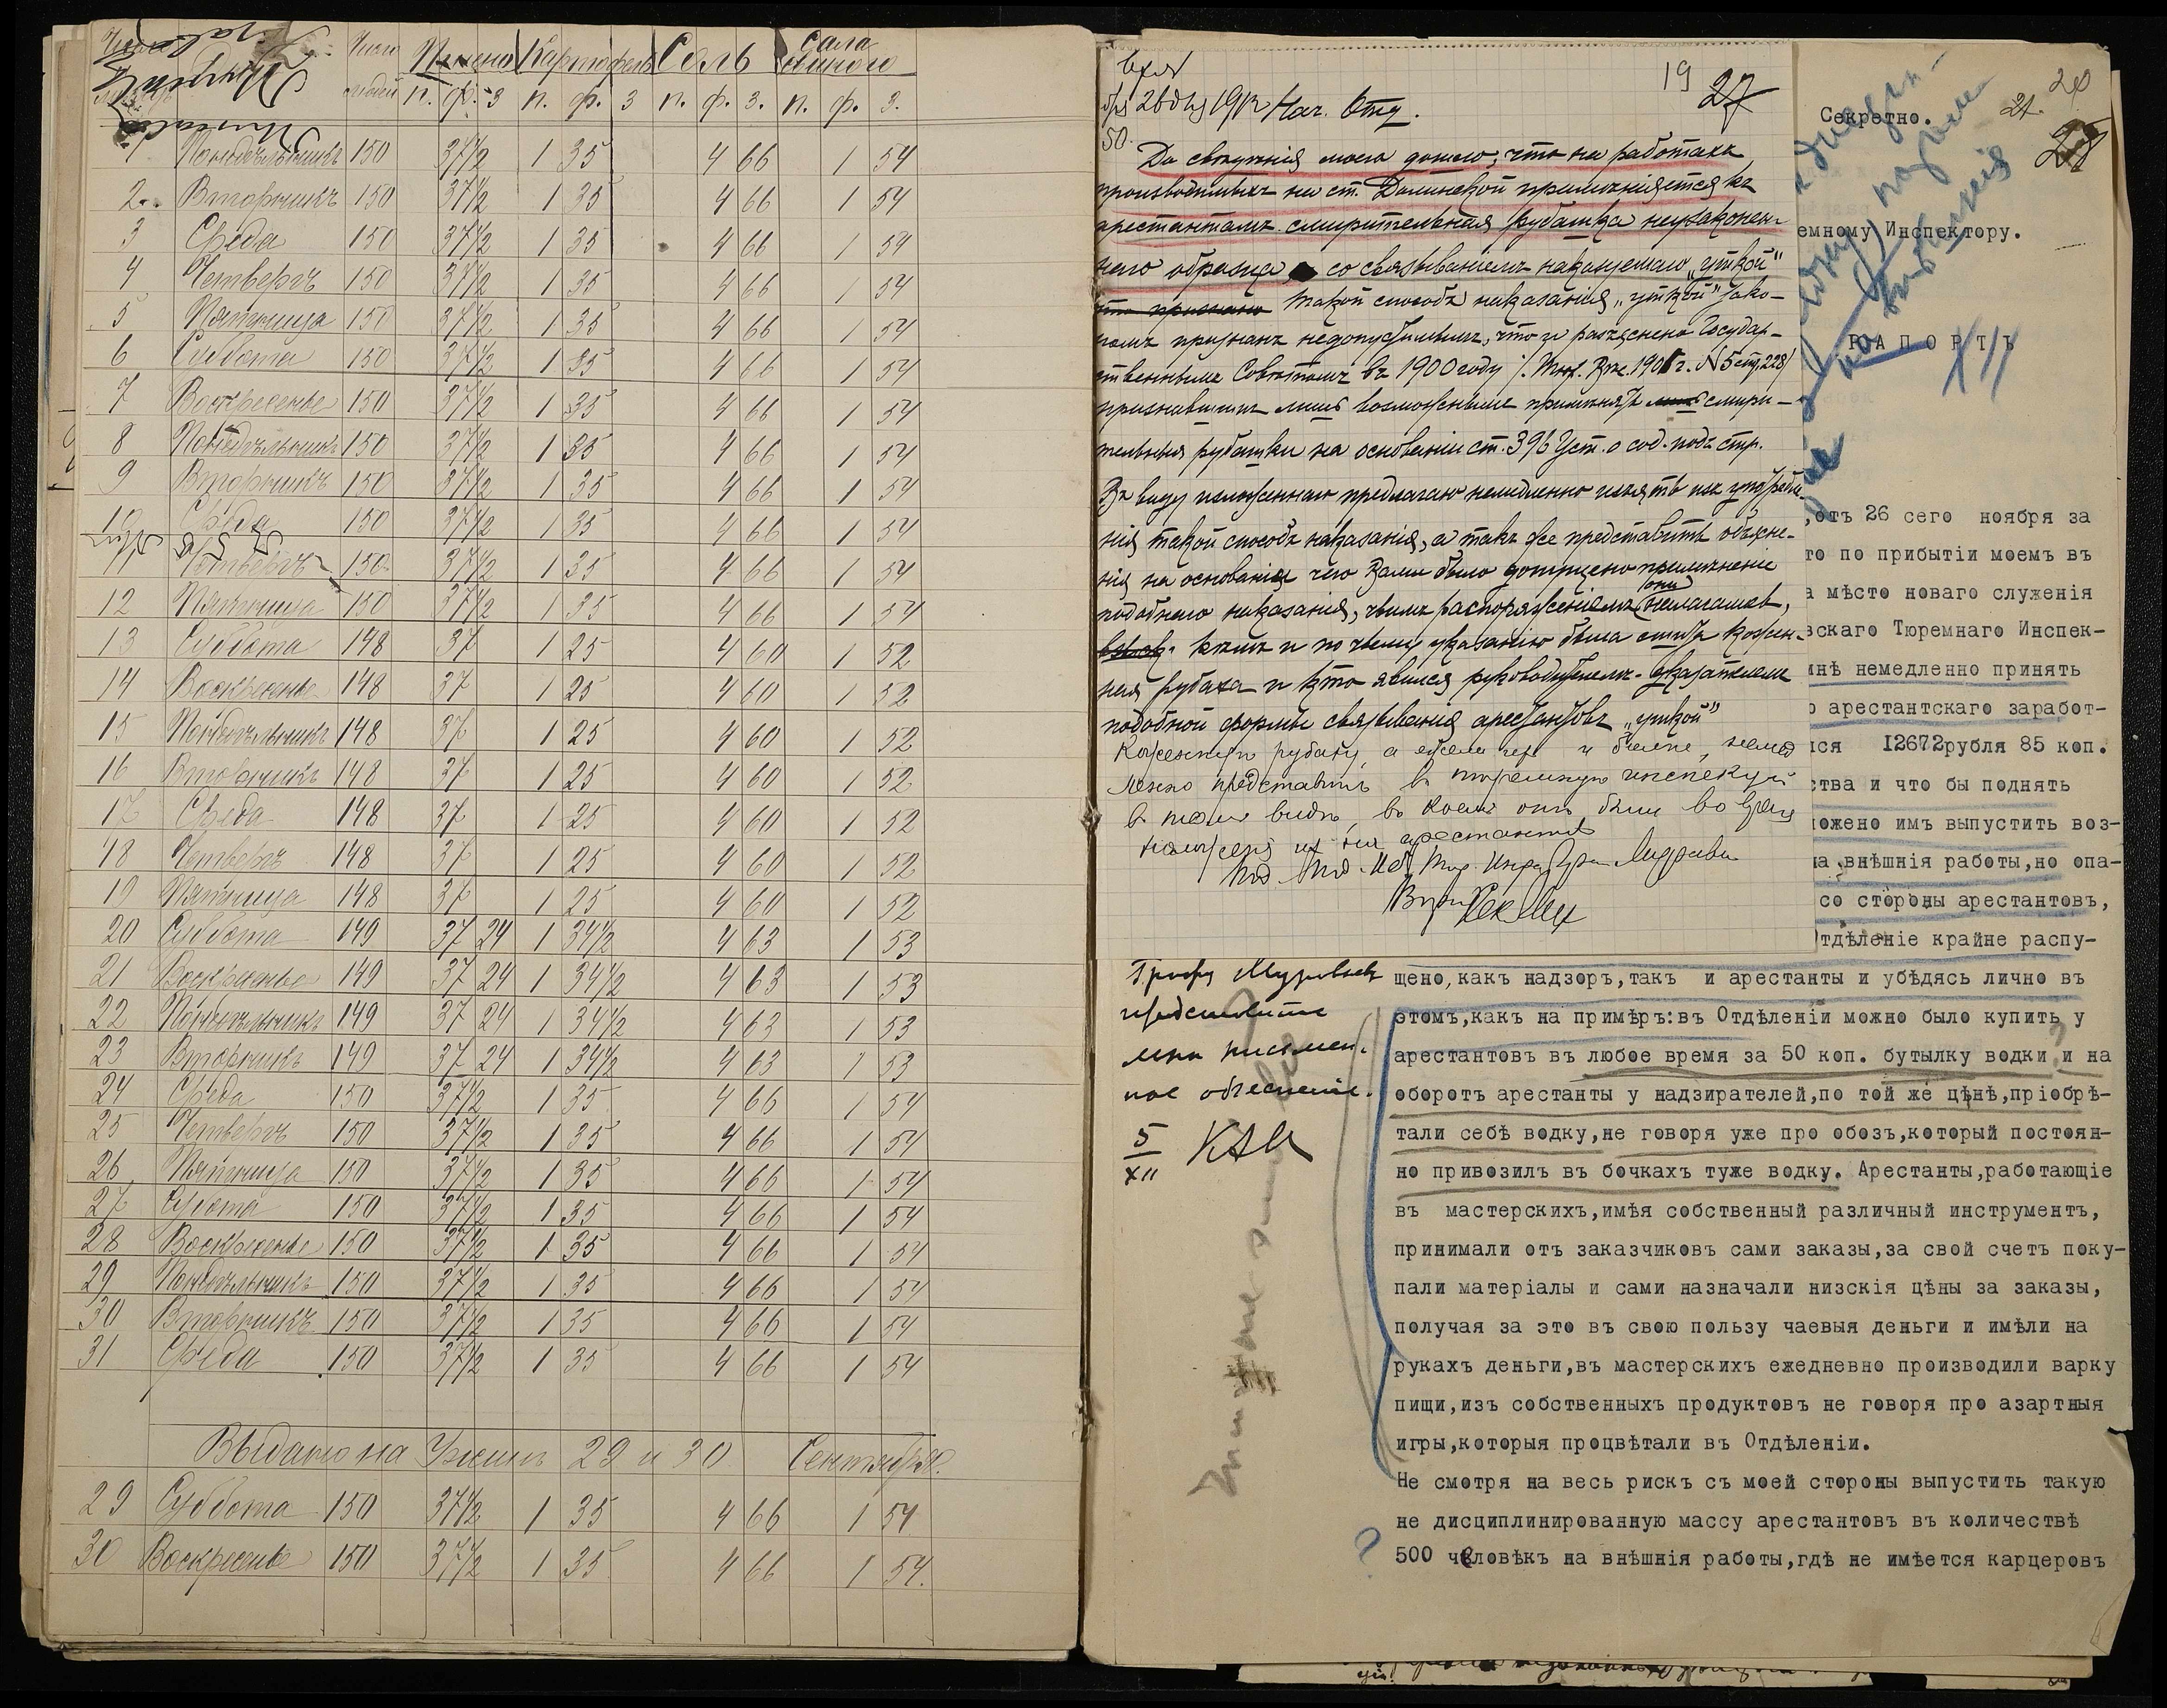 Число людей Пшено Картофель Соль Сала свиного
п. ф. з п. ф. з п. ф. з. п. ф. з.
1 Понедѣльникъ 150 37½ 1 35 4 66 1 54
2 Вторникъ 150 37½ 1 35 4 66 1 54
3 Среда 150 37½ 1 35 4 66 1 54
4 Четвергъ 150 37½ 1 35 4 66 1 54
5 Пятница 150 37½ 1 35 4 66 1 54
6 Суббота 150 37½ 1 35 4 66 1 54
7 Воскресенье 150 37½ 1 35 4 66 1 54
8 Понедѣльникъ 150 37½ 1 35 4 66 1 54
9 Вторникъ 150 37½ 1 35 4 66 1 54
10 Среда 150 37½ 1 35 4 66 1 54
11 Четвергъ 150 37½ 1 35 4 66 1 54
12 Пятница 150 37½ 1 35 4 66 1 54
13 Суббота 148 37 1 25 4 60 1 52
14 Воскресенье 148 37 1 25 4 60 1 52
15 Понедѣльникъ 148 37 1 25 4 60 1 52
16 Вторникъ 148 37 1 25 4 60 1 52
17 Среда 148 37 1 25 4 60 1 52
18 Четвергъ 148 37 1 25 4 60 1 52
19 Пятница 148 37 1 25 4 60 1 52
20 Суббота 149 37 24 1 34½ 4 63 1 53
21 Воскресенье 149 37 24 1 34½ 4 63 1 53
22 Понедѣльникъ 149 37 24 1 34½ 4 63 1 53
23 Вторникъ 149 37 24 1 34½ 4 63 1 53
24 Среда 150 37½ 1 35 4 66 1 54
25 Четвергъ 150 37½ 1 35 4 66 1 54
26 Пятница 150 37½ 1 35 4 66 1 54
27 Субота 150 37½ 1 35 4 66 1 54
28 Воскресенье 150 37½ 1 35 4 66 1 54
29 Понедѣльникъ 150 37½ 1 35 4 66 1 54
30 Вторникъ 150 37½ 1 35 4 66 1 54
31 Среда 150 37½ 1 35 4 66 1 54
Выдано на Ужинъ 29 и 30 Сентября.
29 Суббота 150 37½ 1 35 4 66 1 54
30 Воскресенье 150 37½ 1 35 4 66 1 54.
19 27
1912 Нач. Отд.
50.
До свѣдѣнія моего дошло, что на работахъ
производимыхъ на ст. Долинской примѣняется къ
арестантамъ смирительная рубашка неузаконен-
наго образца, со связываніемъ наказуемаго „уткой"
что признано такой способъ наказанія „уткой" зако-
номъ признанъ недопустимымъ, что и разъяснено Государ-
ственнымъ Совѣтомъ въ 1900 году /. Тюр. Вѣс. 1901 г. N 5 стр. 228/
признавшимъ лишь возможнымъ примѣнять смири-
тельныя рубашки на основаніи ст. 396 Уст. о сод. подъ стр.
Въ виду изложеннаго предлагаю немедленно изъять изъ употребле-
нія такой способъ наказанія, а такъ же представить объясне-
нія на основаніи чего Вами было допущено примѣненіе
подобнаго наказанія, чьимъ распоряженіемъ они налагались,
кѣмъ и по чьему указанію была сшита кожан-
ная рубаха и кто явился руководителемъ-указателемъ
подобной формы связыванія арестантовъ „уткой"
Кожанную рубаху, а ежели ... и ..., немед-
ленно представить въ тюремную инспекцію
въ томъ видѣ, въ коемъ онѣ были во время
наложенія ихъ на арестантовъ
Секретно.
21. 20
емному Инспектору.
РАПОРТЪ
XII
,отъ 26 сего ноября за
то по прибытіи моемъ въ
а мѣсто новаго служенія
вскаго Тюремнаго Инспек-
мнѣ немедленно принять
о арестантскаго заработ-
лся 12672рубля 85 коп.
ства и что бы поднять
ложено имъ выпустить воз-
на внѣшнія работы,но опа-
со стороны арестантовъ,
Отдѣленіе крайне распу-
щено,какъ надзоръ,такъ и арестанты и убѣдясь лично въ
этомъ,какъ на примѣръ:въ Отдѣленіи можно было купить у
арестантовъ въ любое время за 50 коп. бутылку водки и на
оборотъ арестанты у надзирателей,по той же цѣнѣ,пріобрѣ-
тали себѣ водку,не говоря уже про обозъ,который постоян-
но привозилъ въ бочкахъ туже водку. Арестанты,работающіе
въ мастерскихъ,имѣя собственный различный инструментъ,
принимали отъ заказчиковъ сами заказы,за свой счетъ поку-
пали матеріалы и сами назначали низскія цѣны за заказы,
получая за это въ свою пользу чаевыя деньги и имѣли на
рукахъ деньги,въ мастерскихъ ежедневно производили варку
пищи,изъ собственныхъ продуктовъ не говоря про азартныя
игры,которыя процвѣтали въ Отдѣленіи.
Не смотря на весь рискъ съ моей стороны выпустить такую
не дисциплинированную массу арестантовъ въ количествѣ
500 человѣкъ на внѣшнія работы,гдѣ не имѣется карцеровъ
Графу Муравьеву
представить
мнѣ письмен-
ное объясненіе.
5
XII
?